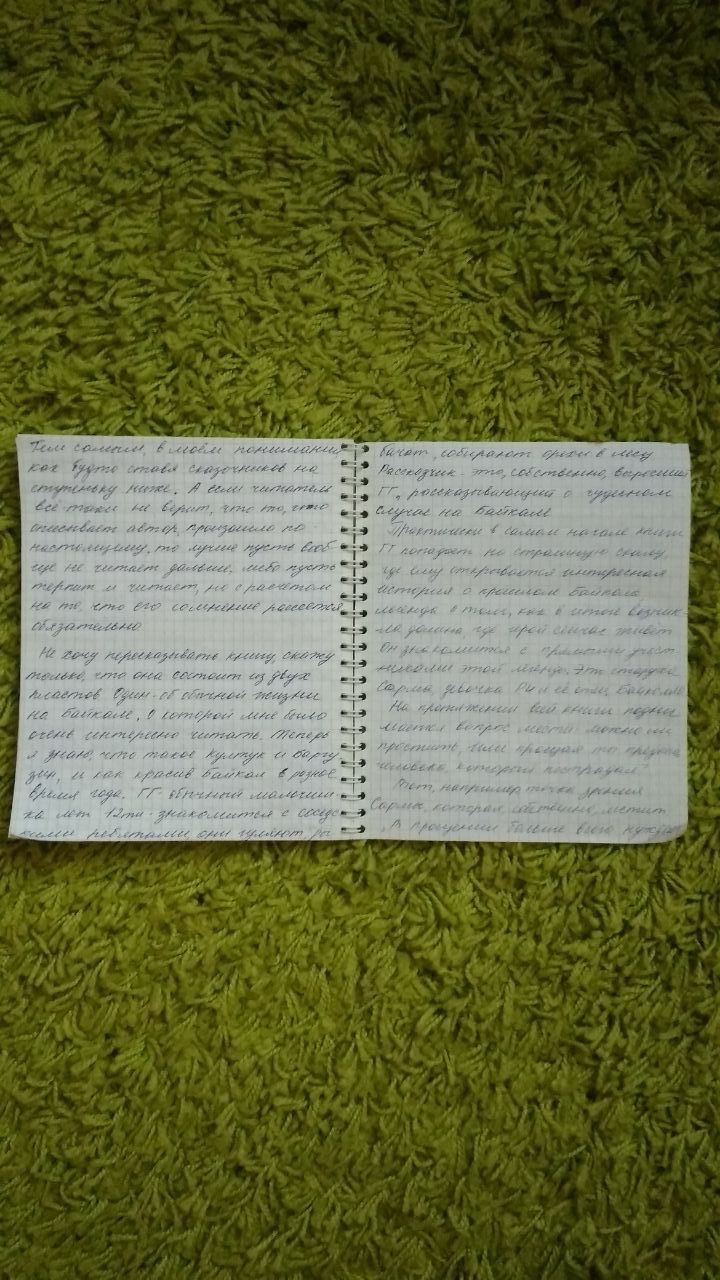 Тем самым, в моём понимании
как будто ставя сказочников на
ступеньку ниже. А если читатель
всё-таки не верит, что то, что
описывает автор, произошло по-
настоящему, то лучше пусть вооб-
ще не читает дальше либо пусть
терпит и читает, но с расчётом
на то, что его сомнение рассеется
обязательно
Не хочу пересказывать книгу, скажу
только, что она состоит из двух
пластов. Один - об обычной жизни
на Байкале, о которой мне было
очень интересно читать. Теперь
я знаю, что такое Култук и Баргу
зин, и как красив Байкал в разное
время года. ГГ обычный мальчиш
ка лет 12ти - знакомится с сосед
скими ребятами, они гуляют, ры
бачат, собирают орехи в лесу
Рассказчик - это, собственно, взрослый
ГГ, рассказывающий о чудесном
случае на Байкале
Практически в самом начале книги
ГГ попадает на страшную скалу,
где ему открывается интересная
история о прошлом Байкала,
легенда о том, как в итоге возник-
ла долина, где герой сейчас живёт
Он знакомится с прямыми участ
никами этой легенды. Это старуха
Сарма, девочка Ри и её отец, Байкал
На протяжении всей книги подни
мается вопрос мести. можно ли
простить, или прощая ты
человека, который пострадал
Вот, например точка зрения
Сармы, которая, собственно, мстит
"В прощении больше всего